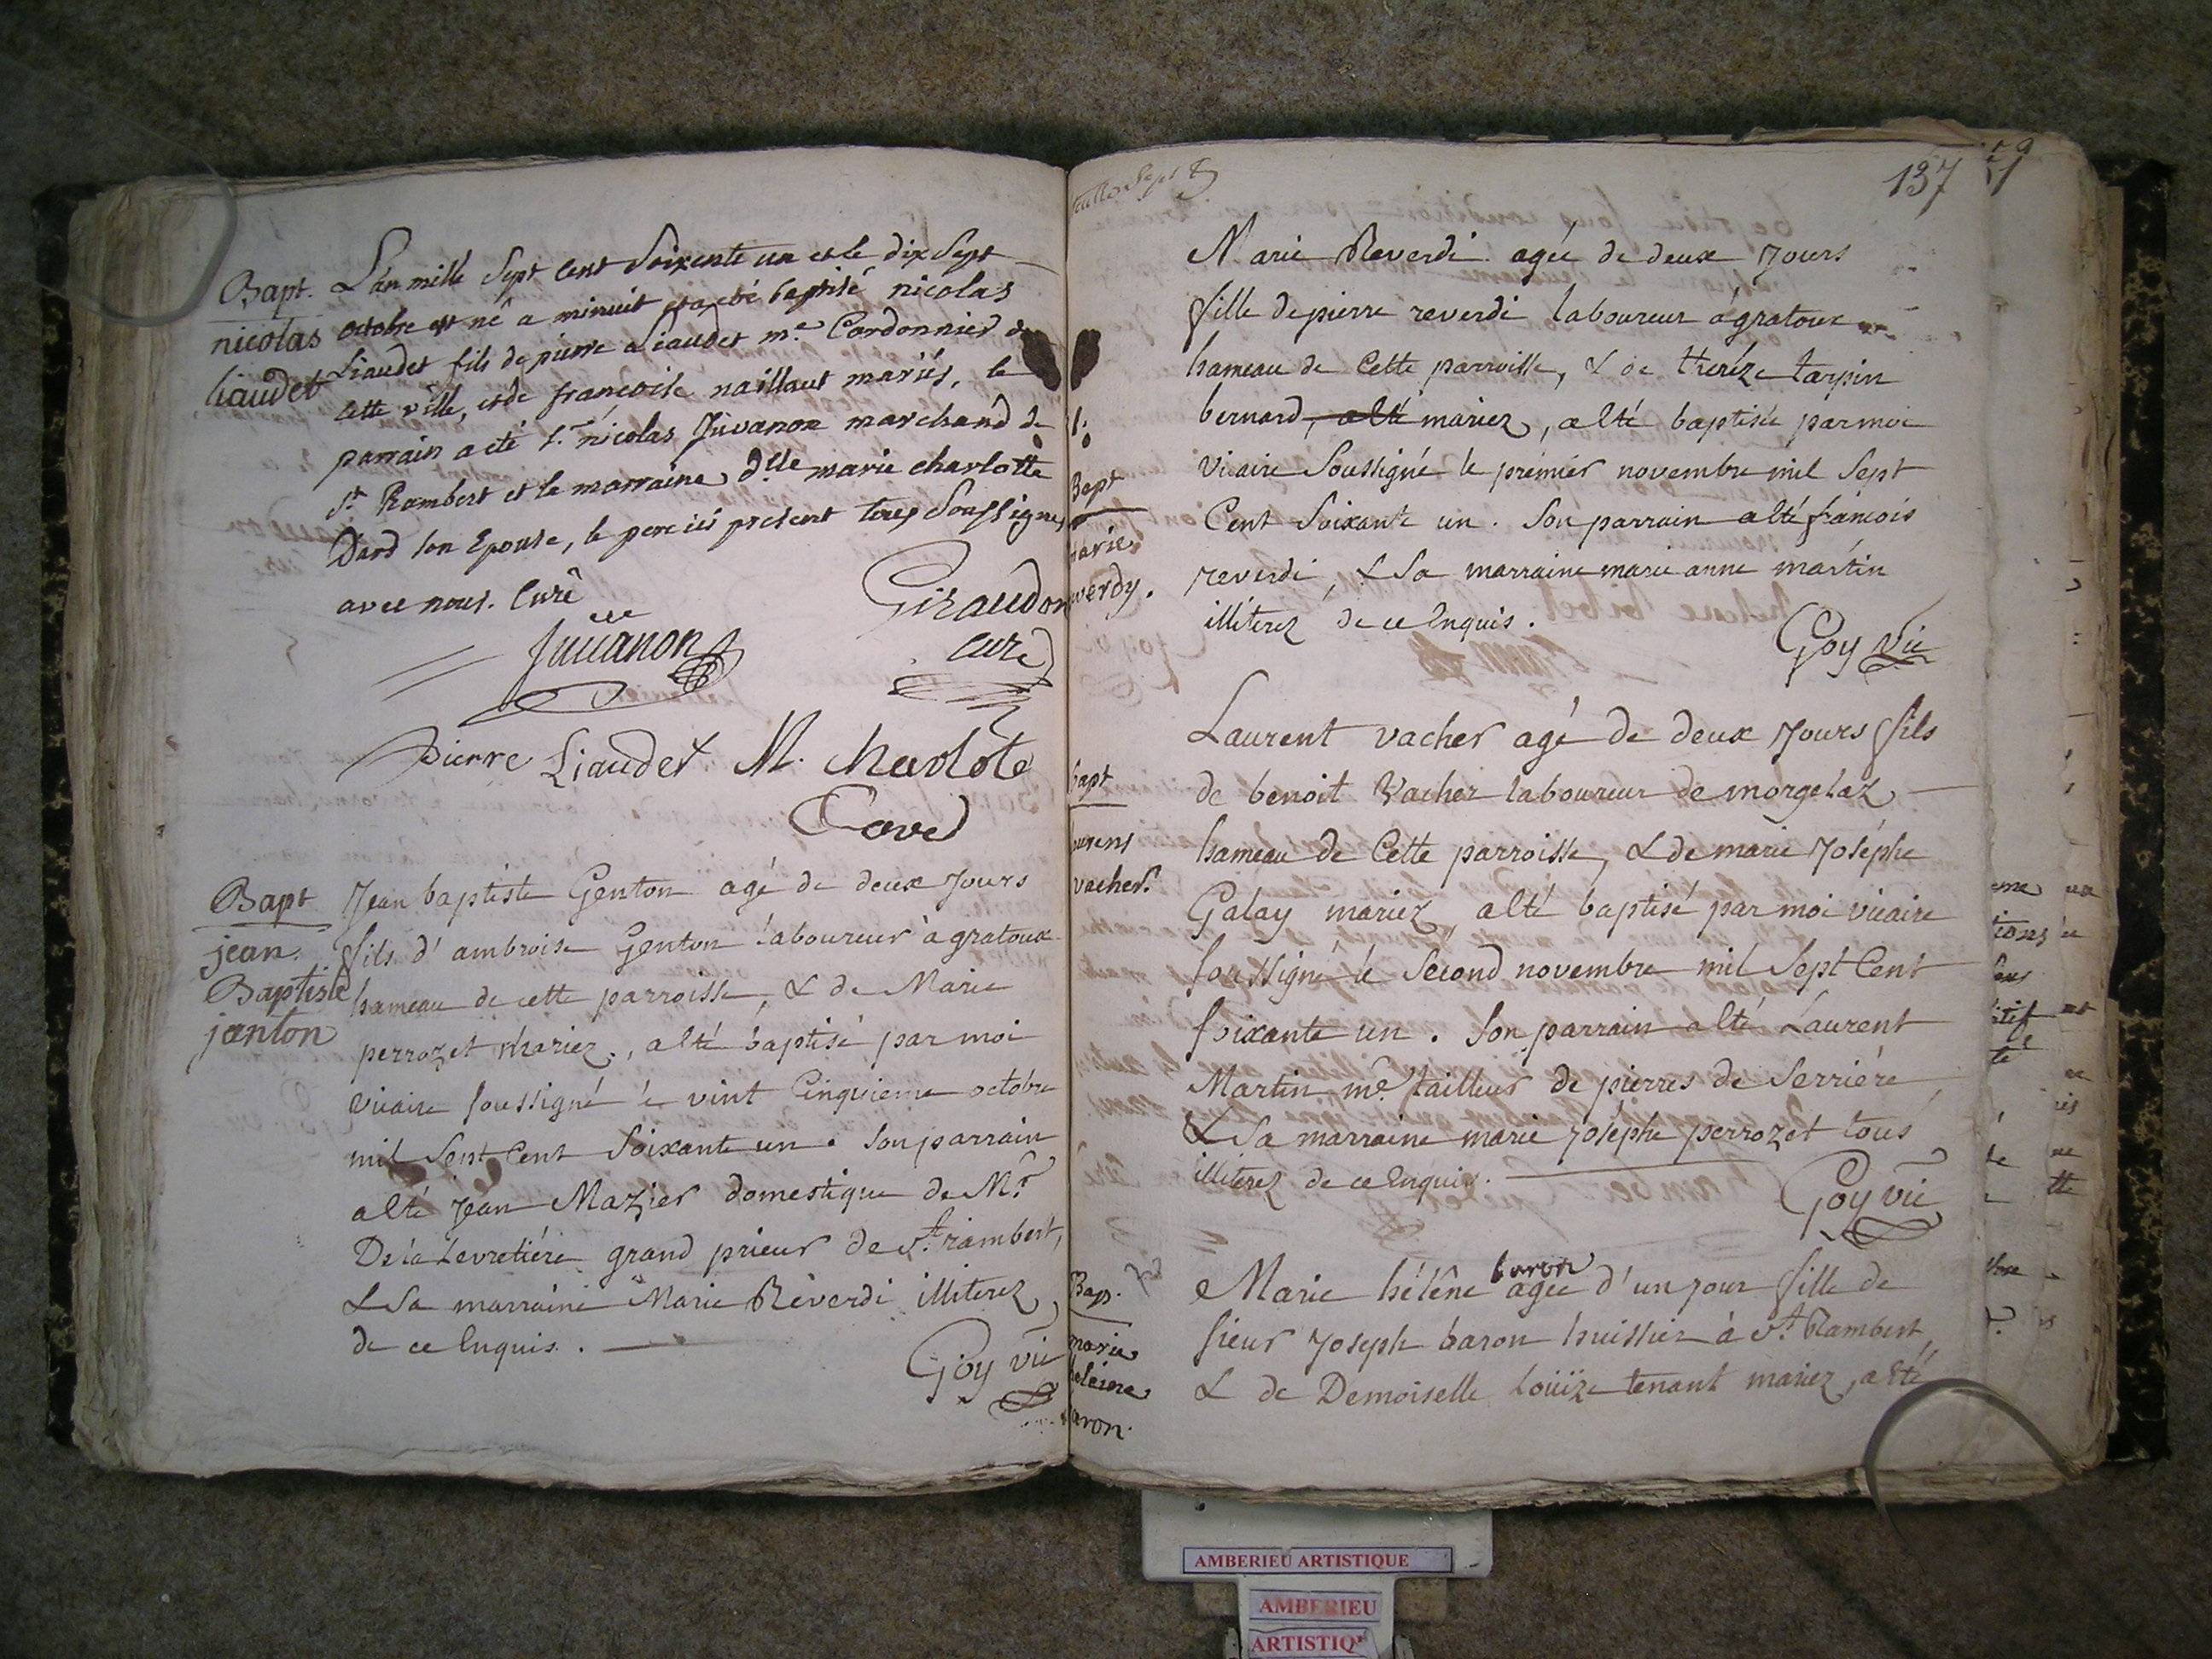 Bapt.
nicolas
liaudet
L'an mille Sept cent Soixente un et le dix Sept
octobre est né a minuit et a eté baptisé nicolas
Liaudet fils de pierre Liaudet m.e Cordonnier de
cette ville, et de francoise naillaut mariés, le
parrain a eté s.r nicolas Juvanon marchand de
s.t Rambert et la marraine d.lle marie charlotte
Dard son Epouse, le pere ici present tous Soussignes
avec nous. Curé
Giraudon
curé
Juvanon
Pierre Liaudet M. charlote
Bapt
jean
Baptiste
janton
Jean baptiste Genton agé de deux Jours
fils d'ambroise Genton laboureur à gratoux
hameau de cette parroisse, & de Marie
perrozet mariez, a été baptisé par moi
vicaire soussigné le vint Cinquieme octobre
mil Sept Cent Soixante un. Son parrain
a été Jean Mazier domestique de M.r
De la Levretiére grand prieur de S.t rambert,
& Sa marraine Marie Réverdi illiterez
de ce Enquis.
Goy vic
137
1.
Bapt
marie
reverdy.
Marie Reverdi agée de deux Jours
fille de pierre reverdi laboureur á gratoux
hameau de Cette parroisse, & de theréze tarpin
bernard, a été mariez, a été baptisée par moi
Vicaire Soussigné le premiér novembre mil Sept
Cent Soixante un. Son parrain a été francois
reverdi, & Sa marraine marie anne martin
illiterez de ce Enquis.
Goy Vic
bapt
laurens
vacher.
Laurent vacher agé de deux Jours fils
de benoit Vacher laboureur de morgelaz
hameau de Cette parroisse, & de marie Joséphe
Galay mariez, a été baptisé par moi vicaire
soussigné le Second novembre mil Sept Cent
soixante un. Son parrain a été Laurent
Martin m.e tailleur de pierres de Serriére
& Sa marraine marie Joséphe perrozet tous
illiterez de ce Enquis.
Goy vic
Bap.
marie
heleine
baron.
Marie hélêne baron agée d'un jour fille de
sieur Joseph baron huissier à S.t Rambert,
& de Demoiselle Loüize tenant mariez, a été
AMBERIEU ARTISTIQUE
AMBERIEU
ARTISTIQ